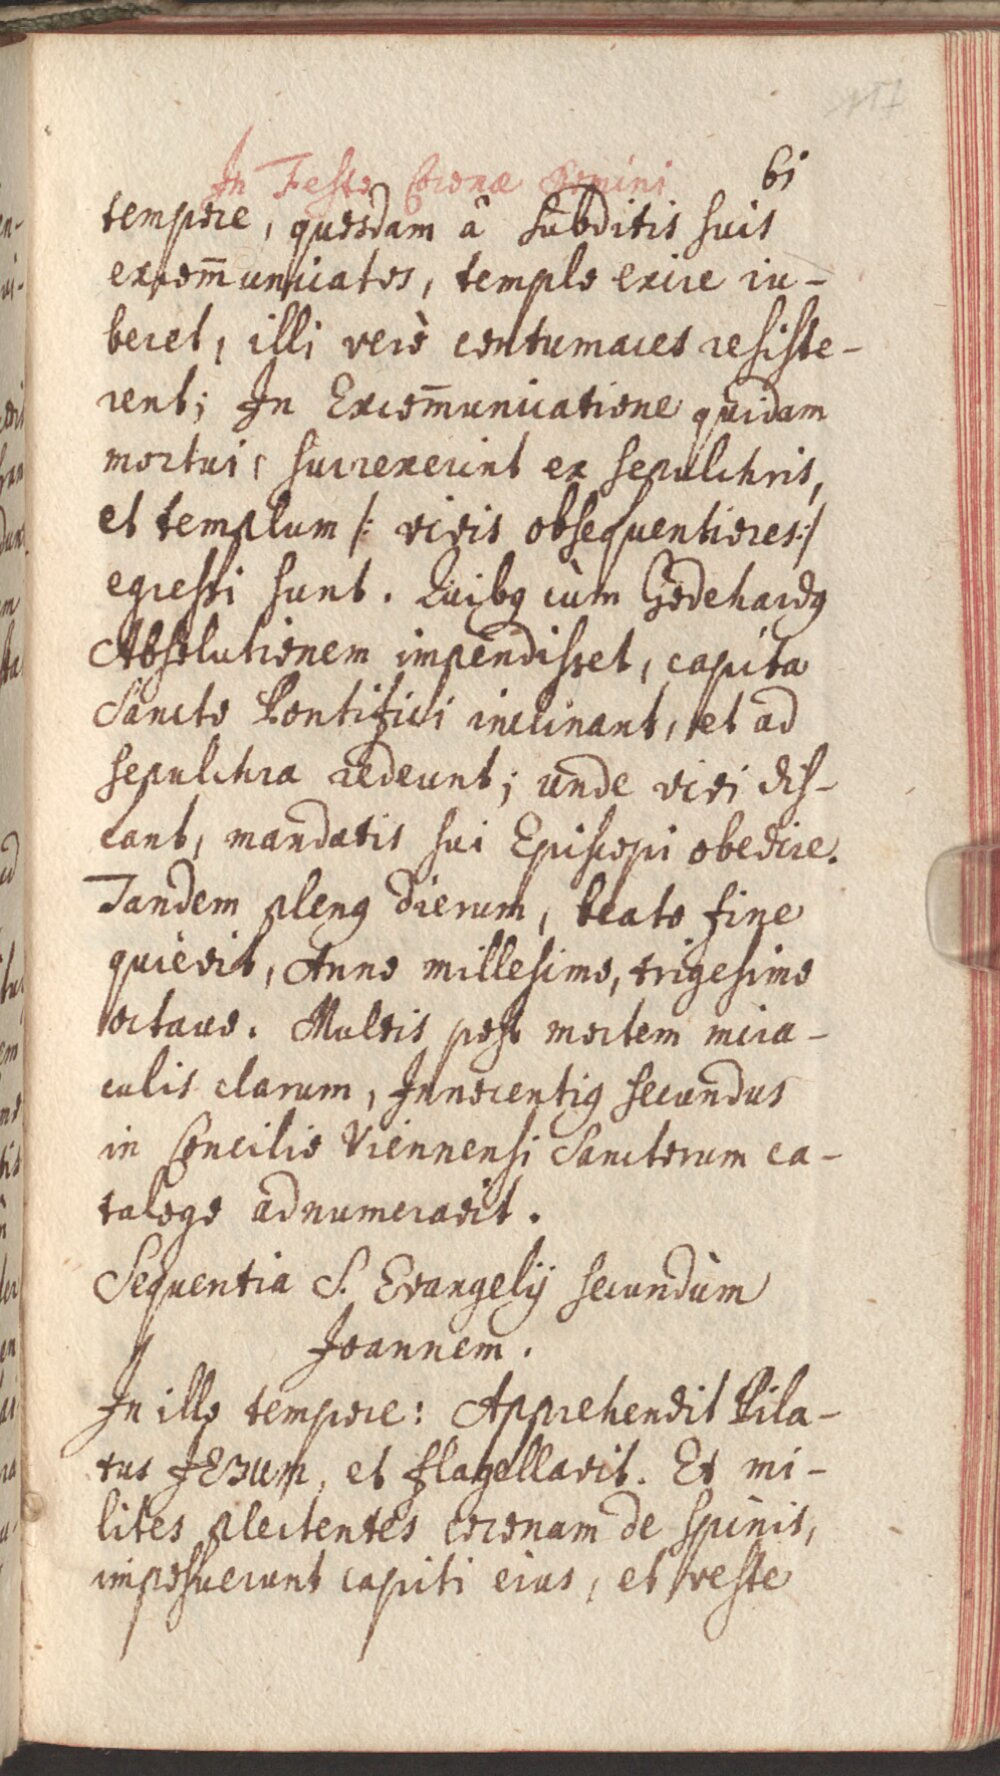 In Festo Coronæ Domini 61
tempore, quosdam â subditis suis
excom̄unicatos, templo exire iu-
beret, illi verò contumaces resiste-
rent; In Excom̄unicatione quidam
mortui, surrexerint ex sepulchris,
et templum /: vivis obsequentiores:/
egressi sunt. Quibꝯ cùm Godehardꝯ
Absolutionem impendisset, capita
Sancto Pontifici inclinant, et ad
sepulchra redeunt; unde vivi dis-
cant, mandatis sui Episcopi obedire.
Tandem plenꝯ dierum, beato fine
quievit, Anno millesimo, trigesimo
octavo. Multis post mortem mira-
culis clarum, Innocentiꝯ secundus
in Concilio Viennensi Sanctorum ca-
talogo adnumeravit.
Sequentia S. Evangelij secundùm
Joannem.
In illo tempore: Apprehendit Pila-
tus JESUM, et flagellavit. Et mi-
lites plectentes coronam de spinis,
imposuerunt capiti eius, et veste